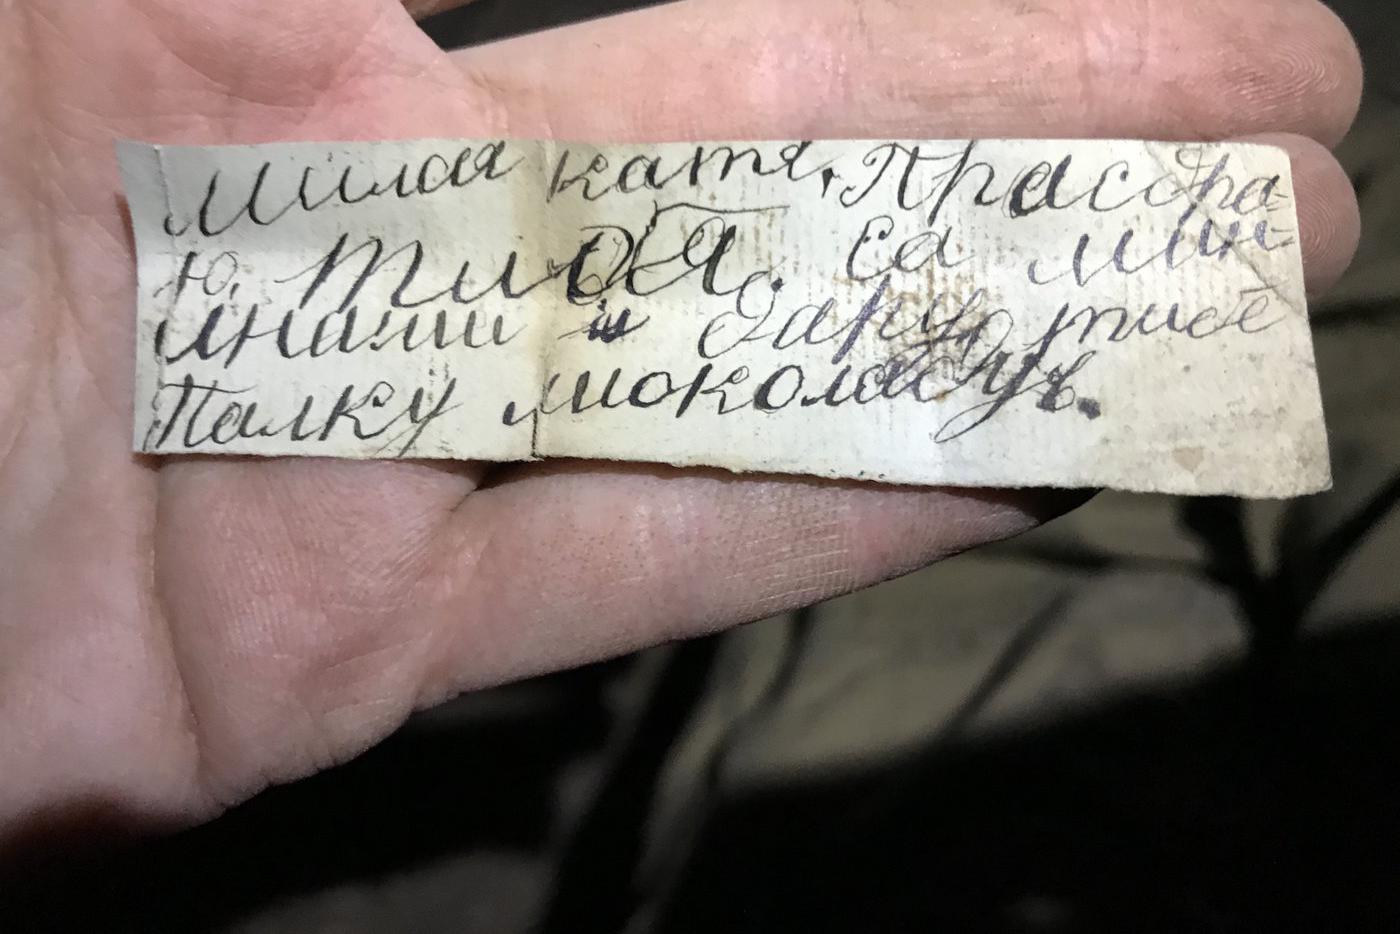 Милая катя, Прасдра-
ю. Тибя. са мин-
инами и дарую тибе
Палку шоколадуъ.